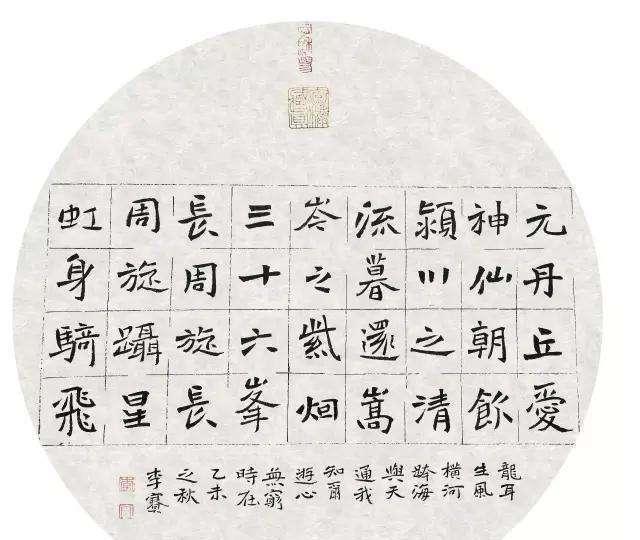 元丹丘愛
神仙朝飲
潁川之清
流暮還嵩
岑之紫烟
三十六峯
長周旋長
周旋躡星
虹身騎飛
龍耳
生風
橫河
跨海
與天
通我
知爾
遊心
無窮
時在
乙未
之秋
李